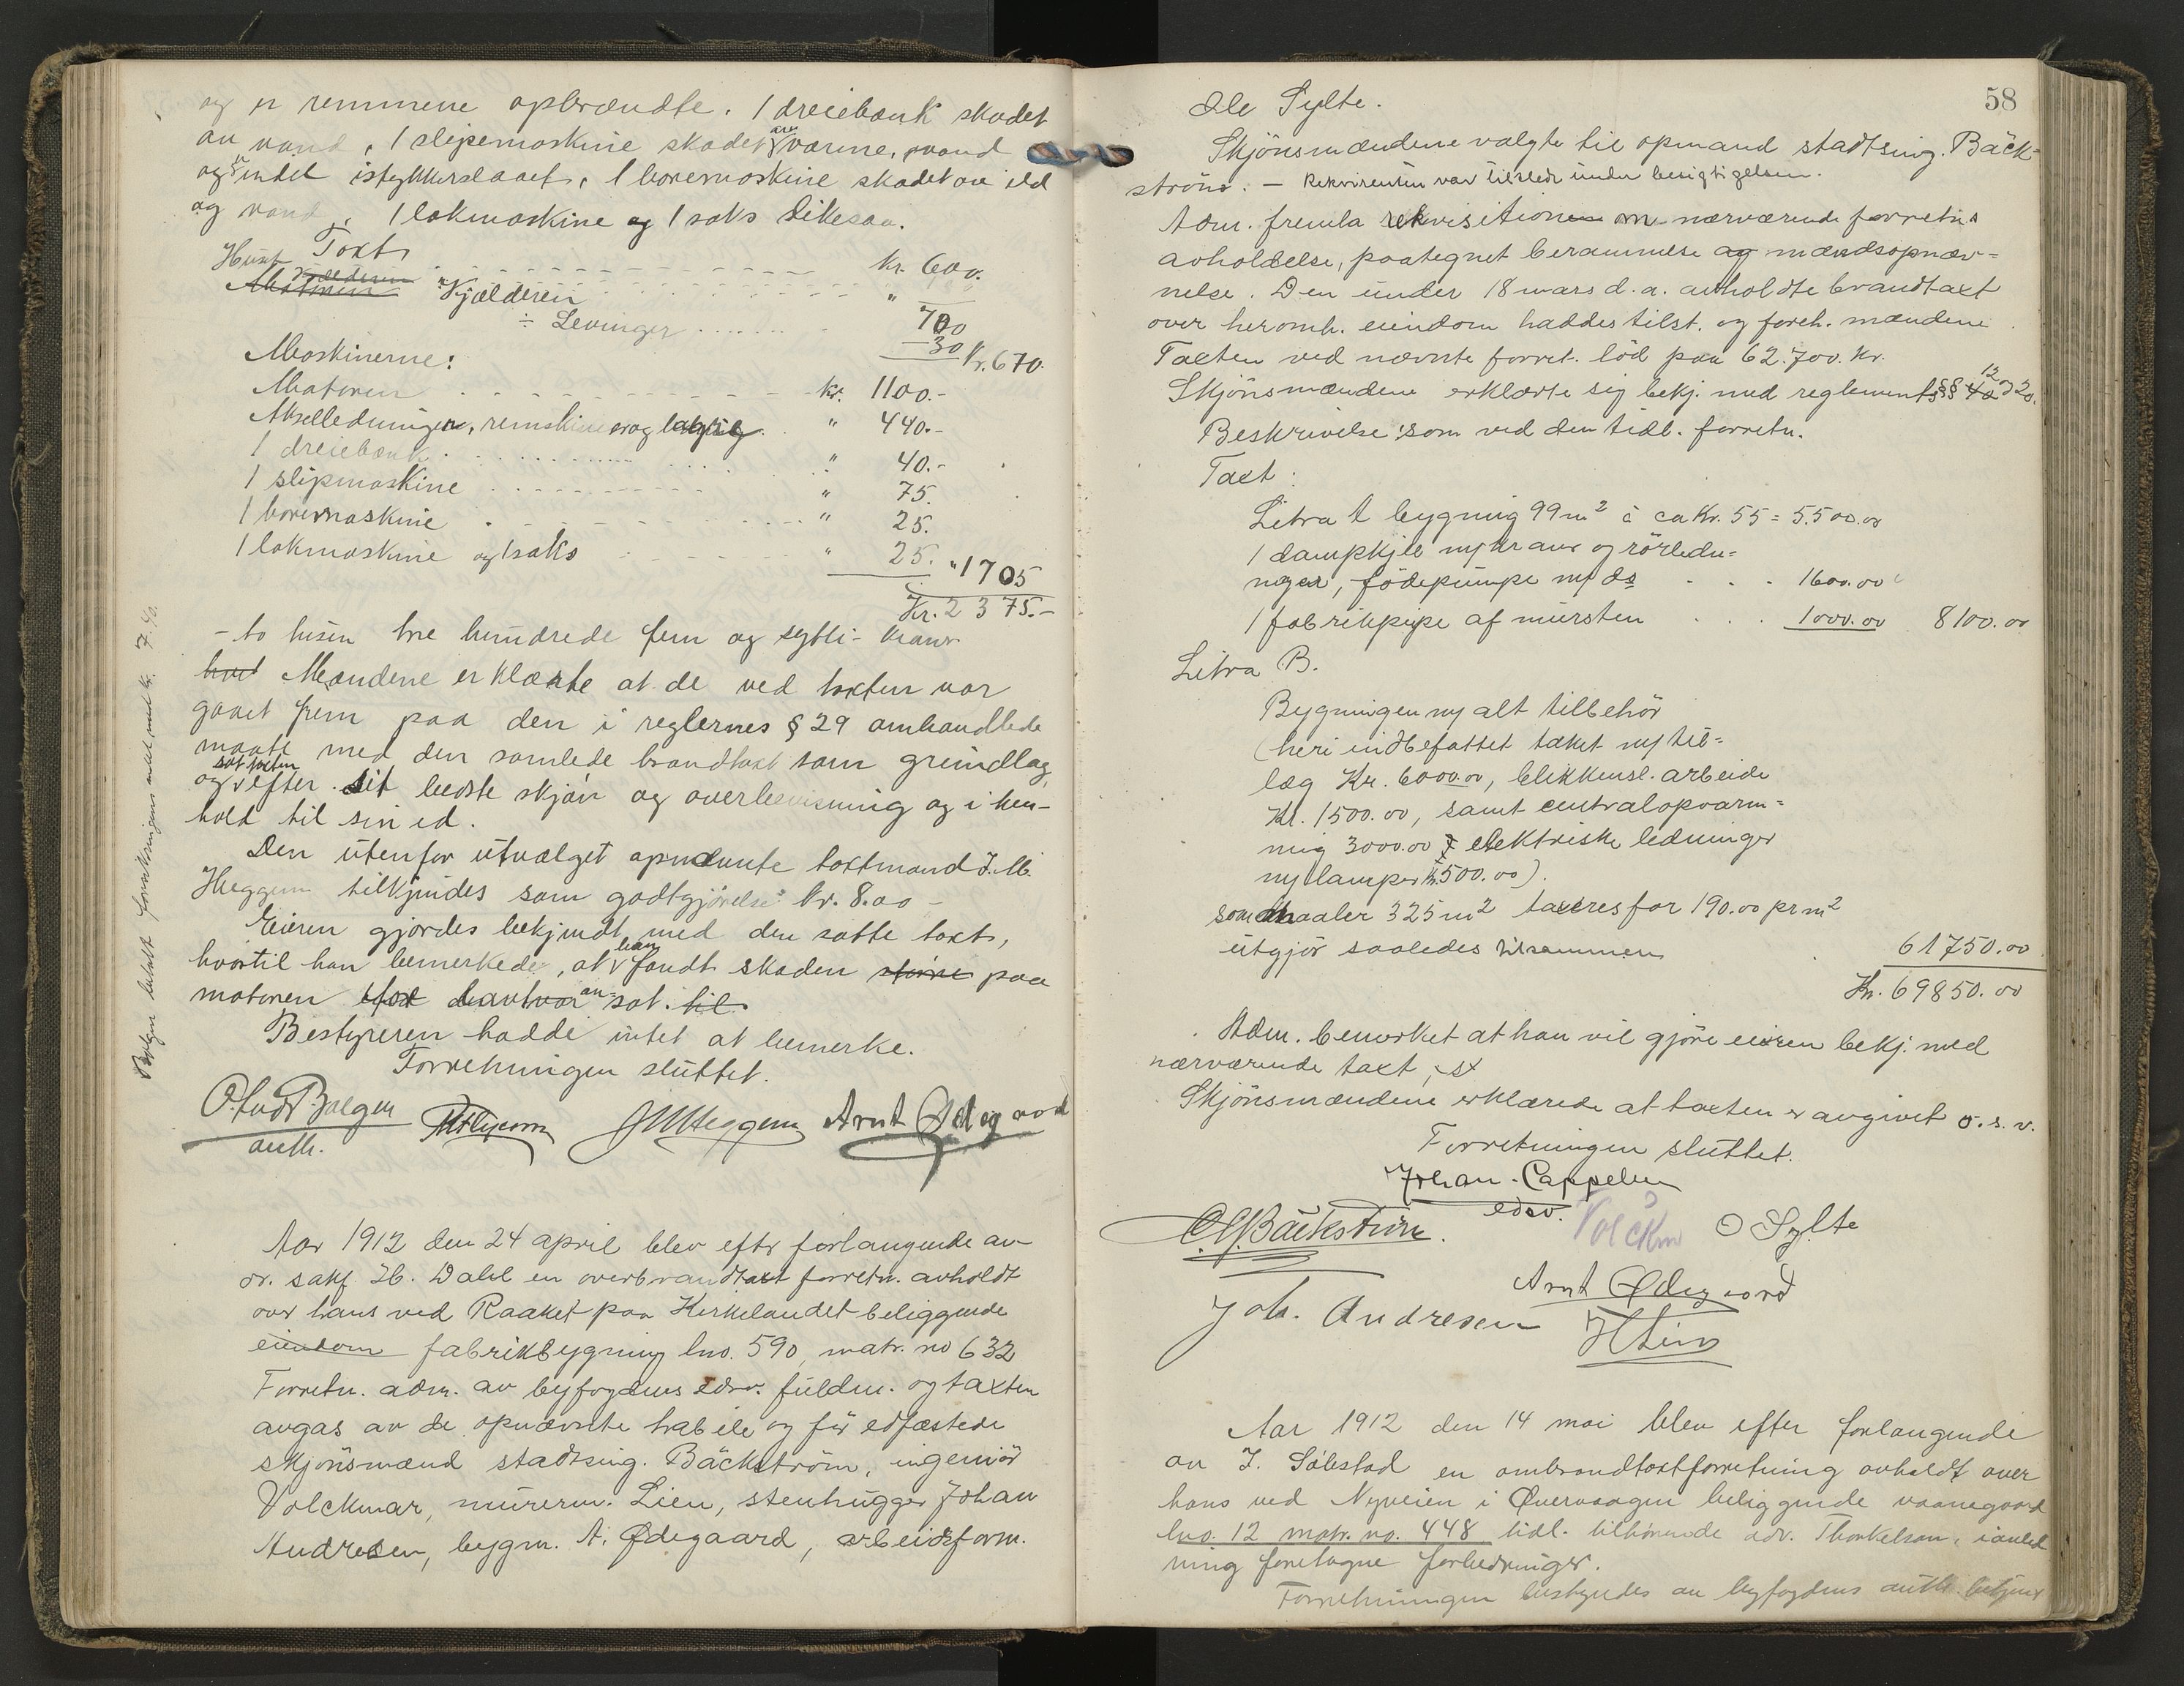 og er remmene opbrændte. 1 dreiebænk skadet
av vand, 1 slipemaskine skadet av varme, vand
og er indel istykkerslaaet, 1 boremaskine skadet av ild
og vand, 1 lokmaskine og 1 saks likesaa.
Taxt
Huset kr. 600.
Motoren Kjælderen
i Kjælderen "
700
÷ Levinger 30 Kr. 670.
Maskinerne:
Motoren kr. 1100.-
Akselledningen, remskiver og " 440.-
1 dreiebænk " 40.-
1 slipmaskine " 75.
1 boremaskine " 25.
1 lokmaskine og 1 saks " 25. " 1705
Kr. 2375.-
- to tusen tre hundrede fem og sytti - kroner
Mændene erklærte at de ved taxten var
gaaet frem paa den i reglernes § 29 omhandlede
maate med den samlede brandtaxt som grundlag,
og sat taxten efter sit bedste skjøn og overbevisning og i hen-
hold til sin ed.
Den utenfor utvalget opnævnte taxtmand J. M.
Heggem tilkjendes som godtgjörelse kr. 8.00 -
Eieren gjordes bekjendt med den satte taxt,
hvortil han bemerkede, at han fandt skaden större paa
motoren end den var an- sat. til.
Bestyreren hadde intet at bemerke.
Forretningen sluttet.
auth. JM Heggem Arnt Ødegaard
Aar 1912 den 24 april blev eftr forlangende av
or. sakf. H. Dahl en overbrandtaxt forretn. avholdt
over hans ved Raaket paa Kirkelandet beliggende
eiendom fabrikbygning lno. 590, matr. no 632
Forretn. adm. av byfogdens edsv. fuldm. og taxten
avgas av de opnævnte habile og för edfæstede
skjönsmænd stadsing. Bäckström, ingeniör
Volckmar, murerm. Lien, stenhugger Johan
Andresen, bygm. A. Ødegaard, arbeidsform.
58
Ole Sylte.
Skjönsmændene valgte til opmand stadtsing. Bäck-
ström. - Rekvirenten var tilstede under besigtigelsen.
Adm. fremla rekvisitionen om nærværende forretns
avholdelse, paategnet berammelse og mændsopnæv=
nelse. Den under 18 mars d.a. avholdte brandtaxt
over heromh. eiendom haddes tilst. og foreh. mændene
Taxten ved nævnte forret. löd paa 62.700. kr.
Skjönsmændene erklærte sig bekj. med reglements §§ 12 og 20.
Beskrivelse som ved den tidl. forretn.
Taxt:
Litra A bygning 99 m² à ca Kr. 55 = 5.500.00
1 dampkjel m/ kraner og rörled=
ninger, födepumpe m/ do 1600.00
1 fabrikpipe af mursten 1000.00 8100.00
Litra B.
Bygningen m/ alt tilbehör
(heri indbefattet taket m/ til=
læg Kr. 6000.00, blikkensl. arbeide
Kr. 1500.00, samt centralopvarm=
ning 3000.00 & elektriske ledninger
m/ lamper kr. 500.00).
som maaler 325 m² taxeres for 190.00 pr m²
utgjör saaledes tilsammen 61750.00
Kr. 69850.00
Adm. bemerket at han vil gjöre eieren bekj. med
nærværende taxt,
Skjönsmændene erklærede at taxten er avgivet o.s.v.
Forretningen sluttet.
Johan Cappelen
edsv.
Bäckström. Volckm O Sylte
Arnt Ødegaard
Joh. Andresen
H Lien
Aar 1912 den 14 mai blev efter forlangende
av J. Sölestad en ombrandtaxtforretning avholdt over
hans ved Nyveien i Øvervaagen beliggende vaaningsgaard
lno. 12 matr. no. 448 tidl. tilhörende adv. Thorkelson, i anled
ning foretagne forbedringer.
Forretningen bestyredes av byfogdens auth.